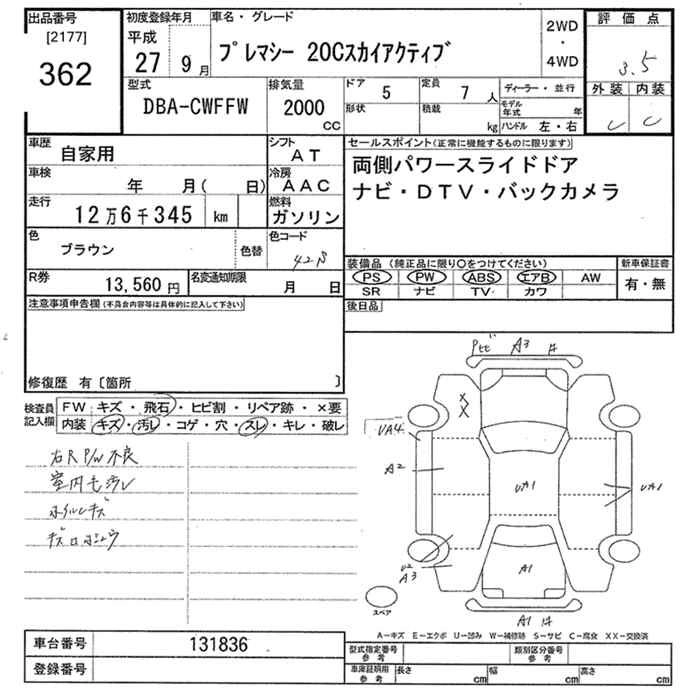 出品番号 初度登録年月 車名・グレード 2WD・4WD 評価点
[2177] 362 平成27年9月 プレマシー 20Cスカイアクティブ 3.5
型式 排気量 ドア 5 定員 7人 ディーラー・並行 外装 内装
DBA-CWFFW 2000cc 形状 積載 kg モデル年式 年 C C
ハンドル 左・右
車歴 自家用 シフト AT セールスポイント(正常に機能するものに限ります)
車検 年 月(日) 冷房 AAC 両側パワースライドドア
走行 12万6千345 km 燃料 ガソリン ナビ・DTV・バックカメラ
色 ブラウン 色替 色コード 42B
装備品(純正品に限り○をつけてください) 新車保証書
R券 13,560円 名変通知期限 月 日 PS PW ABS エアB AW 有・無
SR ナビ TV カワ
注意事項申告欄(不具合内容等は具体的に記入して下さい) 後日品
修復歴 有〔箇所 〕
検査員記入欄 FW キズ・飛石・ヒビ割・リペア跡・×要
内装 キズ・汚レ・コゲ・穴・スレ・キレ・破レ
右R P/W不良
室内モ汚レ
ホイルキズ
A3
X
X
UA4
A2
UA1
UA1
U2
A3
A1
A1
スペア
A-キズ E-エクボ U-凹み W-補修跡 S-サビ C-腐食 XX-交換済
車台番号 131836 型式指定番号 参考 類別区分番号 参考
登録番号 車庫証明用 参考 長さ cm 幅 cm 高さ cm